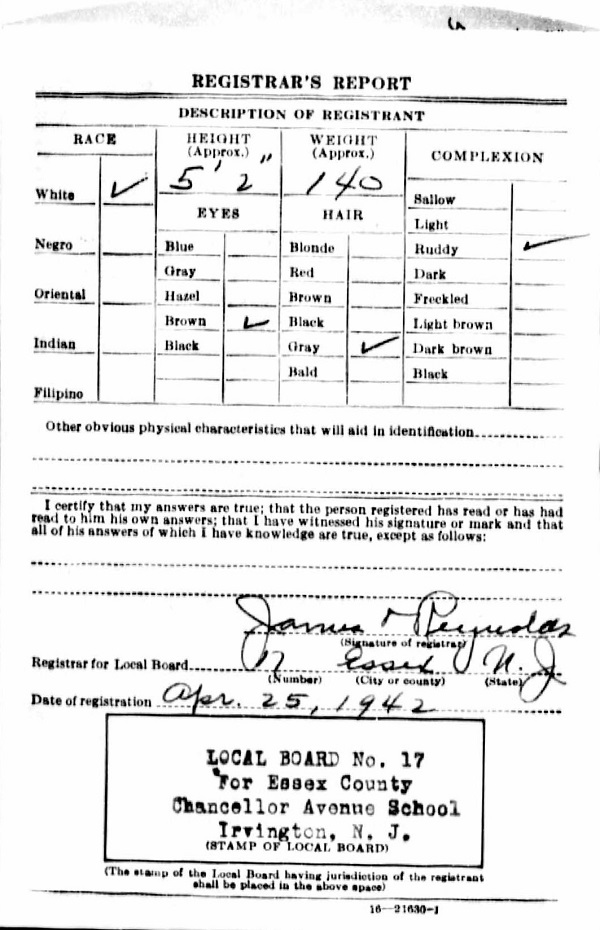 REGISTRAR'S REPORT
DESCRIPTION OF REGISTRANT
RACE
HEIGHT (Approx.)
WEIGHT (Approx.)
COMPLEXION
5' 2"
140
White ✓
Sallow
EYES
HAIR
Light
Negro
Blue
Blonde
Ruddy ✓
Gray
Red
Dark
Oriental
Hazel
Brown
Freckled
Brown ✓
Black
Light brown
Indian
Black
Gray ✓
Dark brown
Bald
Black
Filipino
Other obvious physical characteristics that will aid in identification
I certify that my answers are true; that the person registered has read or has had
read to him his own answers; that I have witnessed his signature or mark and that
all of his answers of which I have knowledge are true, except as follows:
James Reynolds
(Signature of registrar)
Registrar for Local Board 17 Essex N. J.
(Number) (City or county) (State)
Date of registration Apr. 25, 1942
LOCAL BOARD No. 17
For Essex County
Chancellor Avenue School
Irvington, N. J.
(STAMP OF LOCAL BOARD)
(The stamp of the Local Board having jurisdiction of the registrant
shall be placed in the above space)
16—21630-1